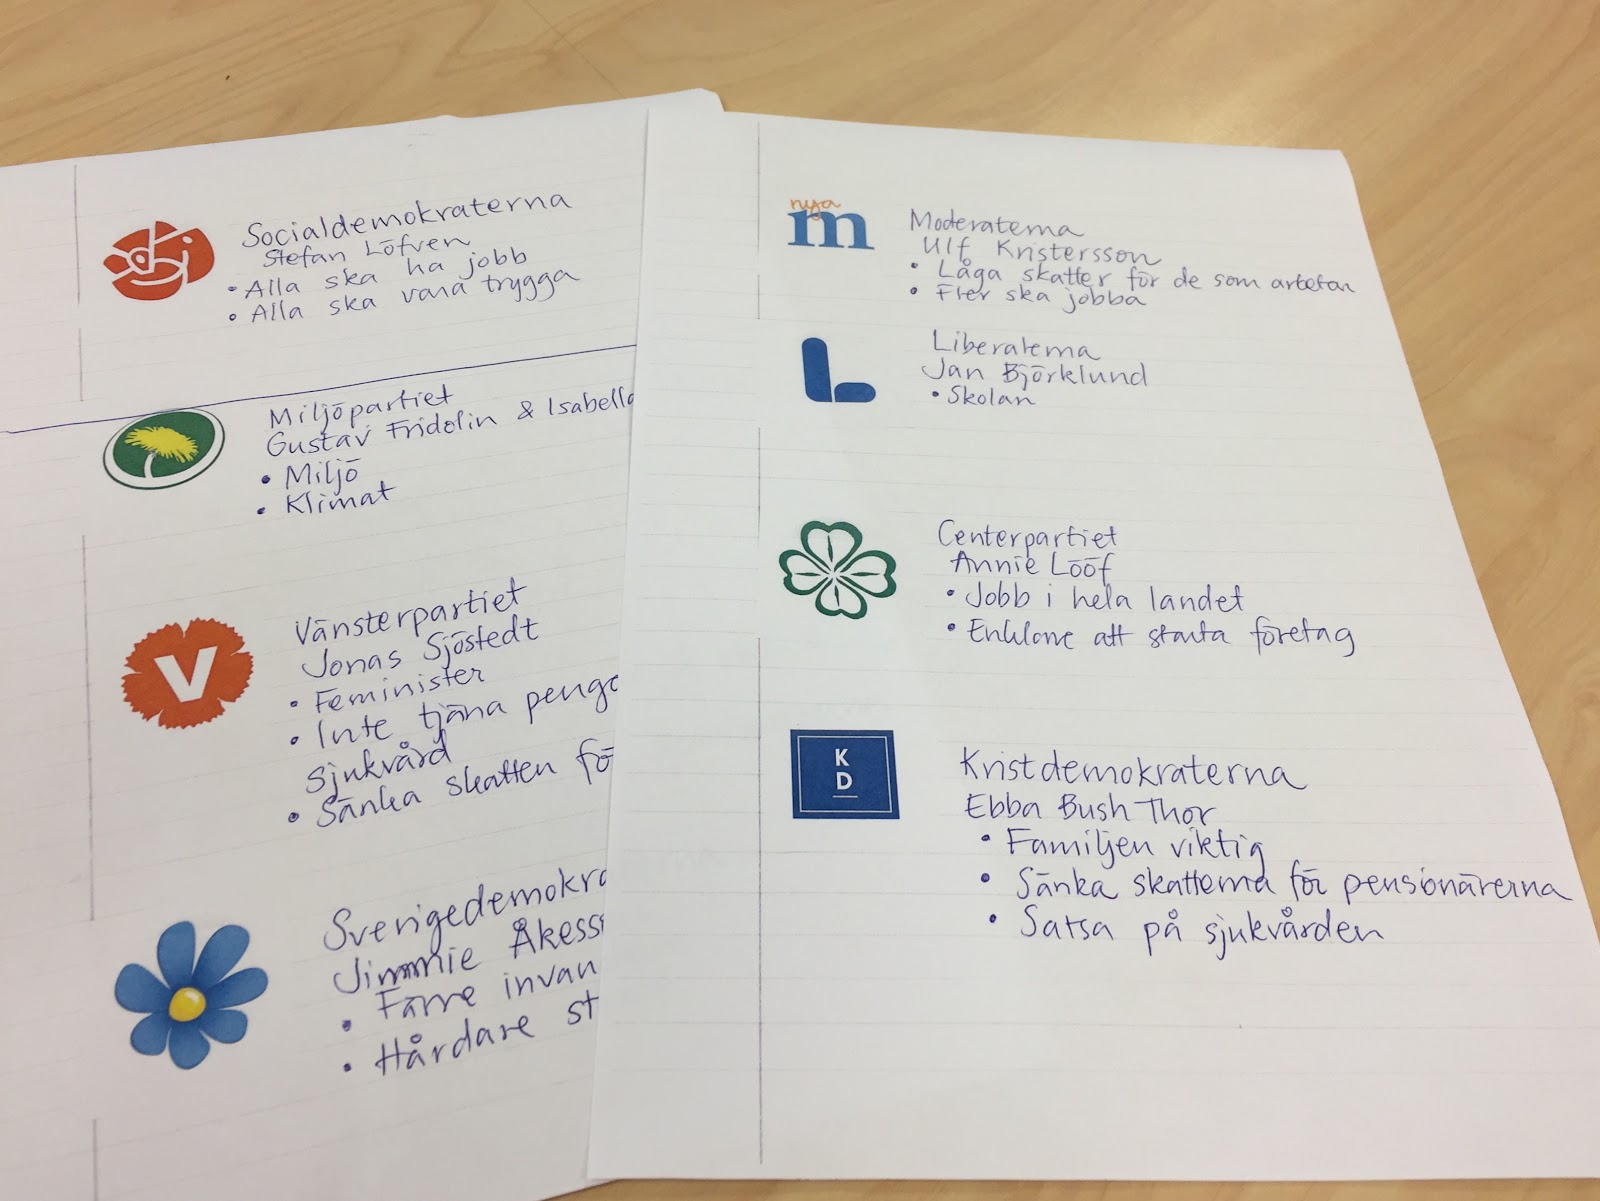 Socialdemokraterna
Stefan Löfven
• Alla ska ha jobb
• Alla ska vara trygga
Miljöpartiet
Gustav Fridolin & Isabella
• Miljö
• Klimat
V
Vänsterpartiet
Jonas Sjöstedt
• Feminister
• Inte tjäna
sjukvård
• Sänka skatten för
Jimmie
• Färre
• Hårdare
nya
m
Moderaterna
Ulf Kristersson
• Låga skatter för de som arbetar
• Fler ska jobba
L
Liberalerna
Jan Björklund
• Skolan
Centerpartiet
Annie Lööf
• Jobb i hela landet
• Enklare att starta företag
K
D
Kristdemokraterna
Ebba Bush Thor
• Familjen viktig
• Sänka skatterna för pensionärerna
• Satsa på sjukvården